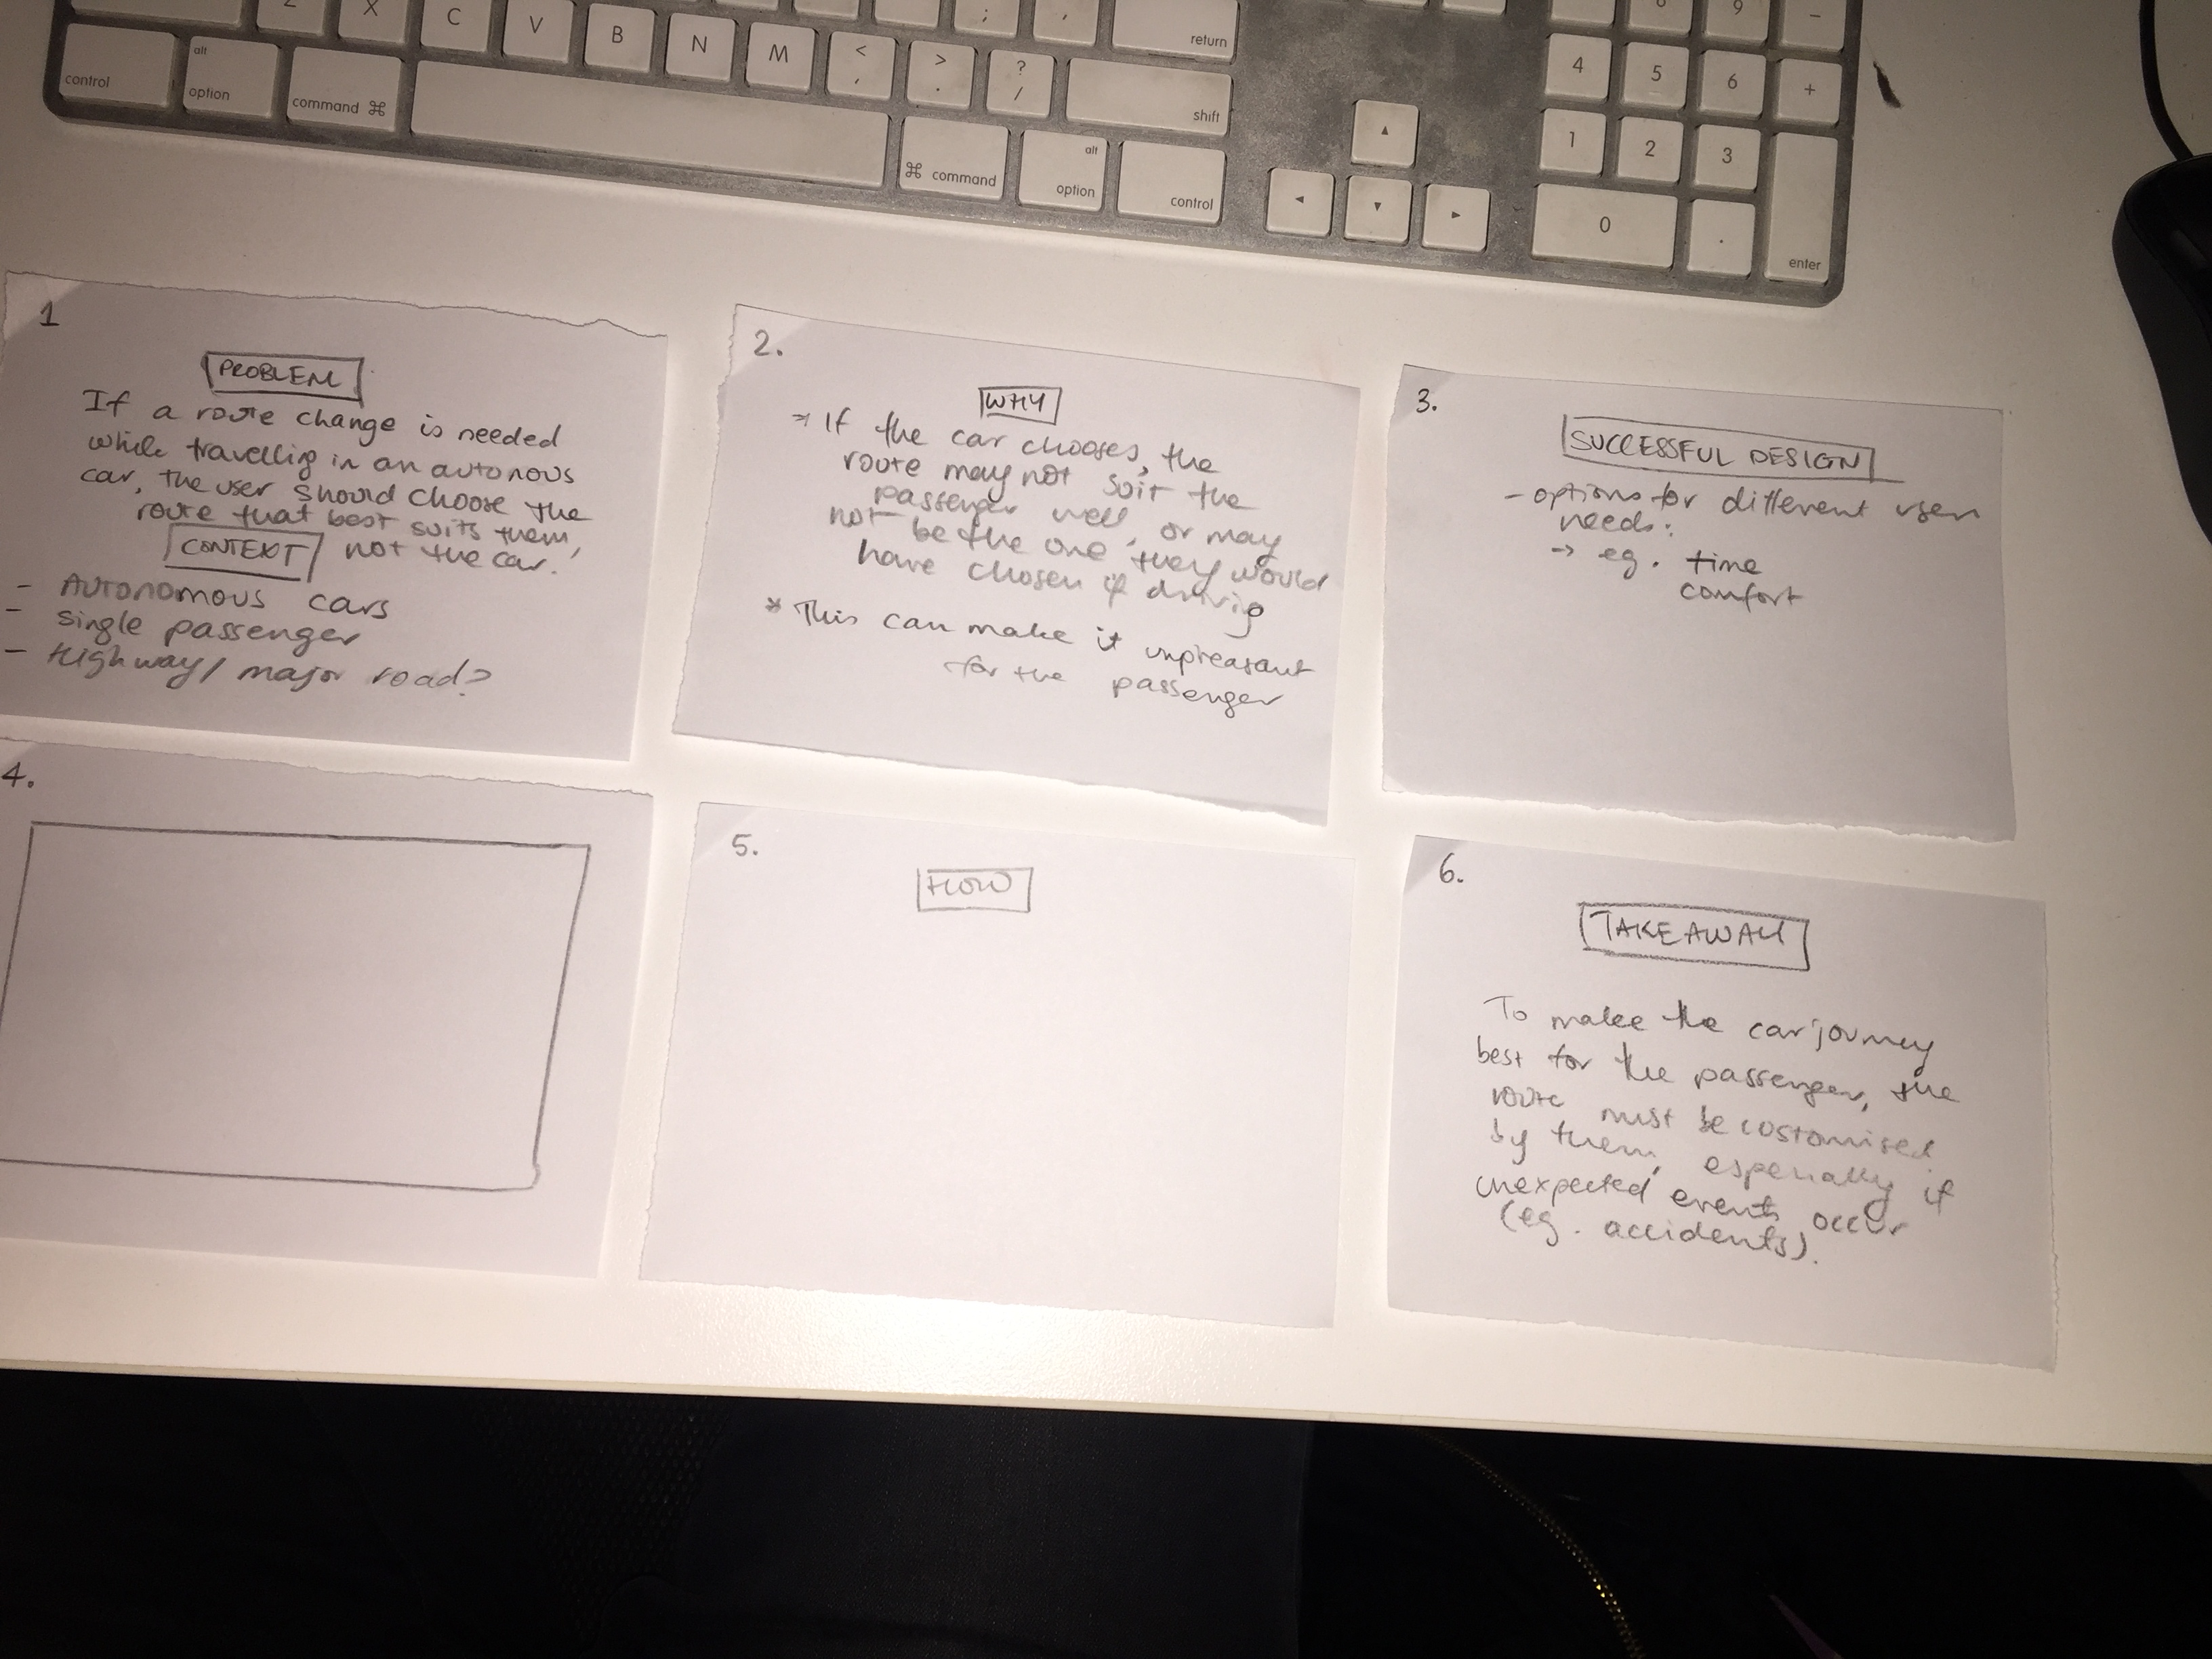 Z X C V B N M < , > . ? /
; ,
return
control
alt
option
command ⌘
shift
⌘ command
alt
option
control
▲
◄ ▼ ►
9 -
4 5 6 +
1 2 3
0 .
enter
1
PROBLEM
If a route change is needed
while travellig in an autonous
car, the user should choose the
route that best suits them,
not the car.
CONTEXT
- Autonomous cars
- single passenger
- Highway/ major road?
2.
WHY
* If the car chooses, the
route may not suit the
passenger well, or may
not be the one they would
have chosen if drivig
* This can make it unpleasant
for the passenger
3.
SUCCESSFUL DESIGN
- options for different user
needs:
→ eg. time
comfort
4.
5.
HOW
6.
TAKEAWAY
To make the car journey
best for the passenger, the
route must be costomised
by them, especially if
unexpected events occur
(eg. accidents).